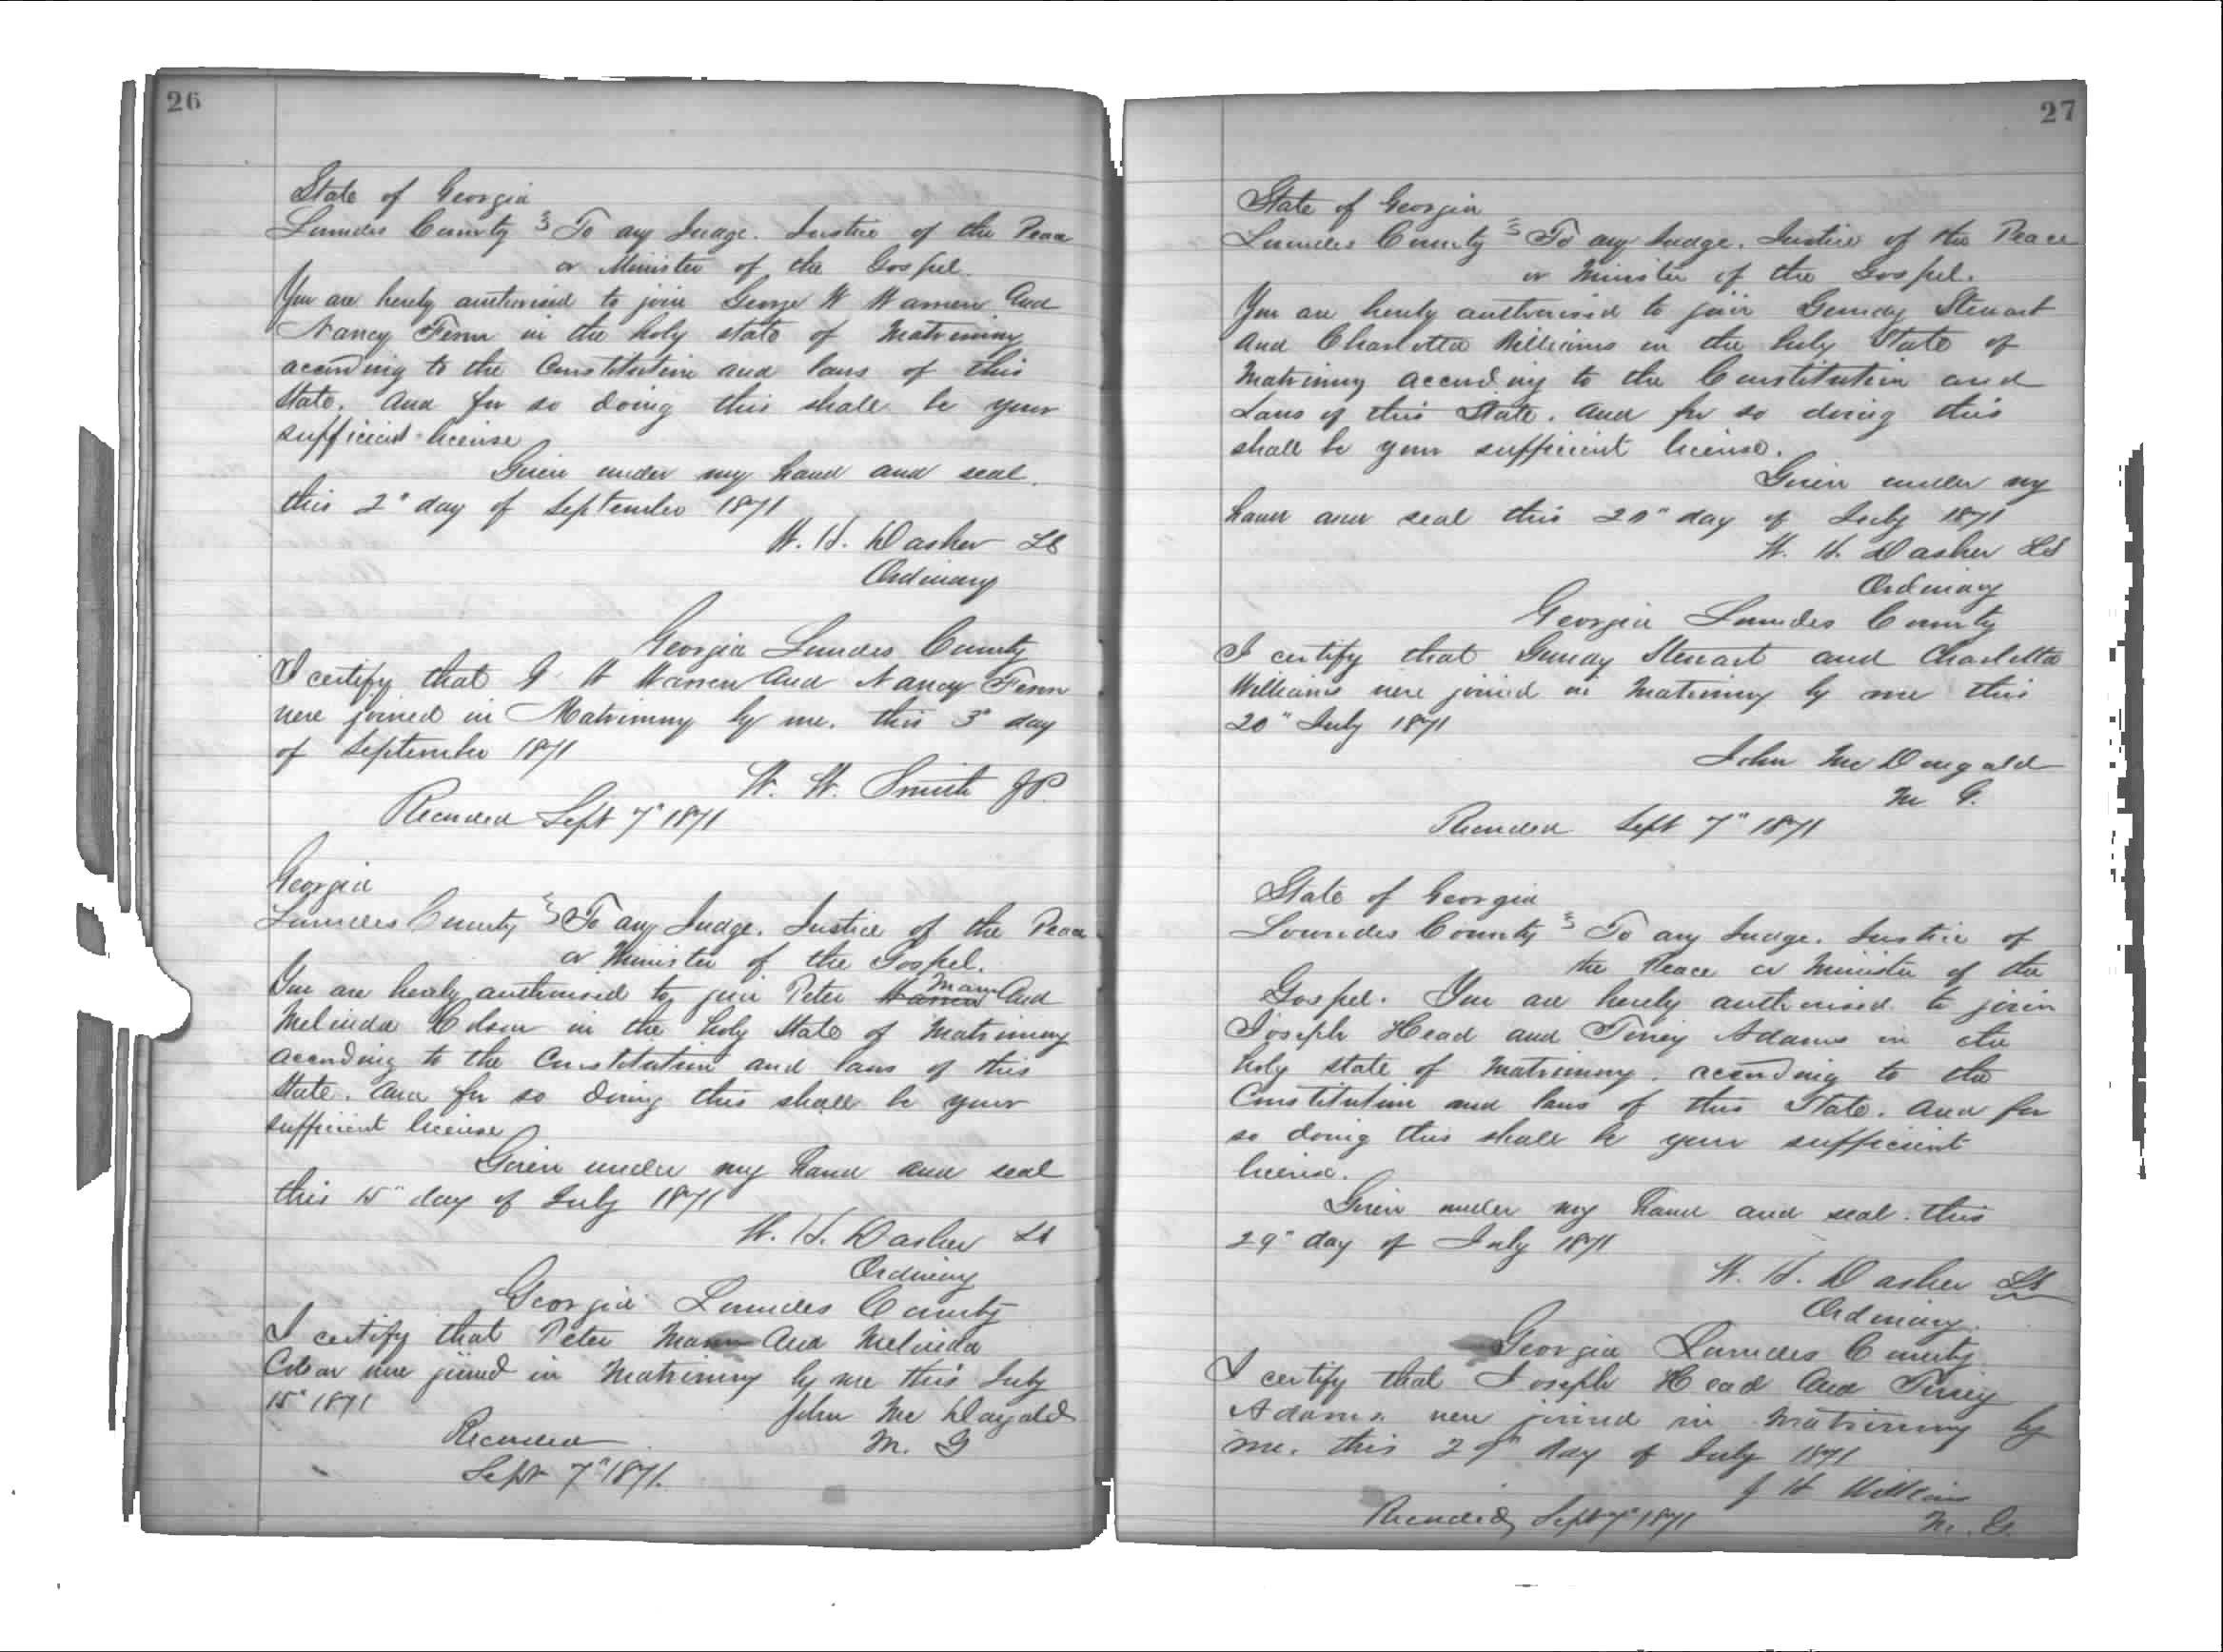 26
State of Georgia
Lowndes County } To any Judge. Justice of the Peace
or Minister of the Gospel.
You are hereby authorised to join George W Warren And
Nancy Fenn in the holy state of Matrimony
according to the Constitution and laws of this
State. And for so doing this shall be your
sufficient license
Given under my hand and seal.
this 2" day of September 1871
W. H. Dasher LS
Ordinary
Georgia Lowndes County
I certify that G W Warren And Nancy Fenn
were joined in Matrimony by me. this 3" day
of September 1871
W. W. Smith JP.
Recorded Sept 7" 1871
Georgia
Lowndes County } To any Judge. Justice of the Peace
or Minister of the Gospel.
You are hereby authorised to join Peter Warren Mann And
Melinda Colson in the holy State of Matrimony
according to the Constitution and laws of this
State. And for so doing this shall be your
sufficient license
Given under my hand and seal
this 15" day of July 1871
W. H. Dasher LS
Ordinary
Georgia Lowndes County
I certify that Peter Mann And Melinda
Colson were joined in Matrimony by me this July
15" 1871
John Mc Dugald
M. G
Recorded
Sept 7" 1871.
27
State of Georgia
Lowndes County } To any Judge. Justice of the Peace
or Minister of the Gospel.
You are hereby authorised to join Stewart
And Charlotta Williams in the holy State of
Matrimony according to the Constitution and
Laws of this State. And for so doing this
shall be your sufficient license.
Given under my
hand and seal this 20" day of July 1871
W. H. Dasher LS
Ordinary
Georgia Lowndes County
I certify that Stewart and Charlotta
Williams were joined in Matrimony by me this
20" July 1871
John Mc Dugald
M G.
Recorded Sept 7" 1871
State of Georgia
Lowndes County } To any Judge. Justice of
the Peace or Minister of the
Gospel. You are hereby authorised to join
Joseph Head and Tiney Adams in the
holy state of Matrimony. according to the
Constitution and laws of this State. And for
so doing this shall be your sufficient
license.
Given under my hand and seal. this
29" day of July 1871
W. H. Dasher LS
Ordinary.
Georgia Lowndes County
I certify that Joseph Head And Tiney
Adams. were joined in Matrimony by
me. this 29" day of July 1871
J H Williams
M. G.
Recorded Sept 7" 1871